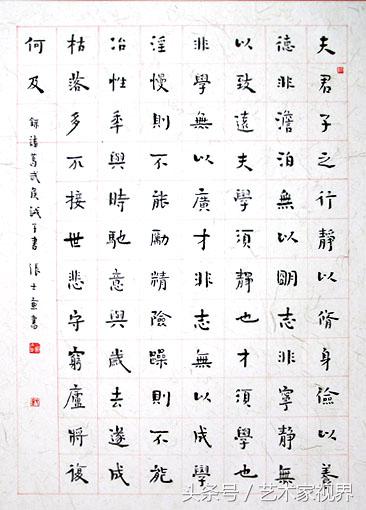 夫君子之行靜以脩身儉以養
德非澹泊無以明志非寧靜無
以致遠夫學須靜也才須學也
非學無以廣才非志無以成學
淫慢則不能勵精險躁則不能
冶性年與時馳意與歲去遂成
枯落多不接世悲守窮廬將復
何及
錄諸葛武侯誡子書 張士書
头条号／艺术家视界